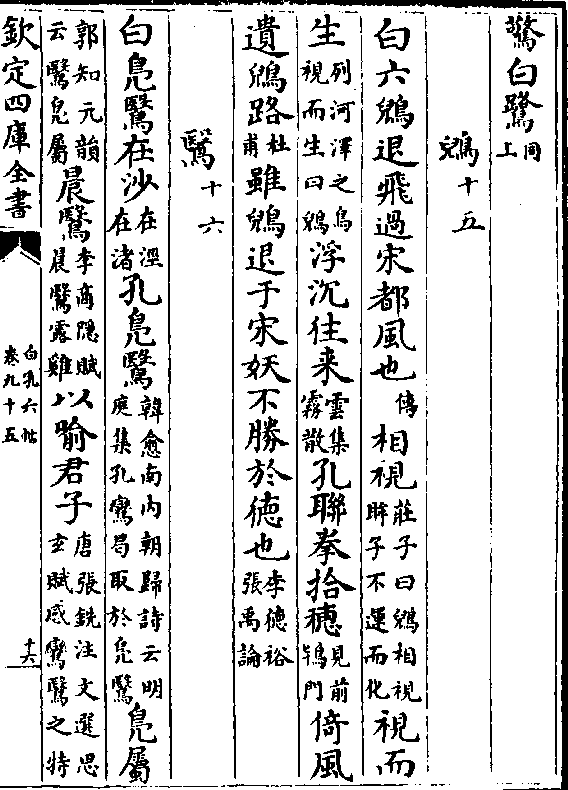 驚白鷺同上
鶂十五
白六鶂退飛過宋都風也傳相視莊子曰鶂相視眸子不運而化視而
生列河澤之鳥視而生曰鶂浮沉往來雲集霧散孔聯拳拾穗見前鴇門倚風
遺鶂路杜甫雖鶂退于宋妖不勝於徳也李徳裕張禹論
鷖十六
白鳬鷖在沙在涇在渚孔鳬鷖韓愈南内朝歸詩云明庭集孔鸞曷取於鳬鷖鳬屬
郭知元韻云鷖鳬屬晨鷖李商隐賦晨鷖露雞以喻君子唐張銑注文選思玄賦感鸞鷖之特
欽定四庫全書
白孔六帖
卷九十五
十六